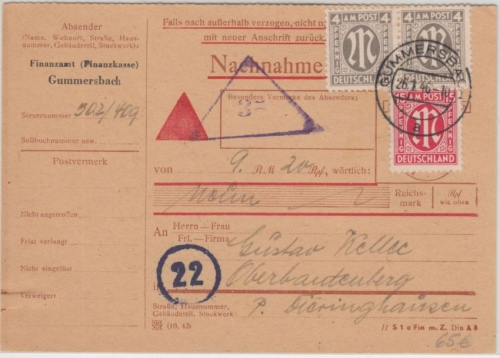 Absender
(Name, Wohnort, Straße, Haus-
nummer, Gebäudeteil, Stockwerk)
Finanzamt (Finanzkasse)
Gummersbach
Steuernummer 302/409
Sollbuchnummer usw.
Postvermerk
Nicht angetroffen
Frist verlangt
Nicht eingelöst
Verweigert
Falls nach außerhalb verzogen, nicht
mit neuer Anschrift zurück
Nachnahme
Besondere Vermerke des Absenders:
4 AM POST 4
DEUTSCHLAND
4 AM POST 4
DEUTSCHLAND
GUMMERSBA
a
AM POST
DEUTSCHLAND
von 9 RM 20 Rpf, wörtlich:
Neun
Reichs-
mark
Rpf
wie oben
An Herrn – Frau
Frl. – Firma
Gustav
22
Straße, Hausnummer,
Gebäudeteil, Stockwerk
p. Dieringhausen
(10. 43)
// S t e Fin m. Z. Din A 6
65€